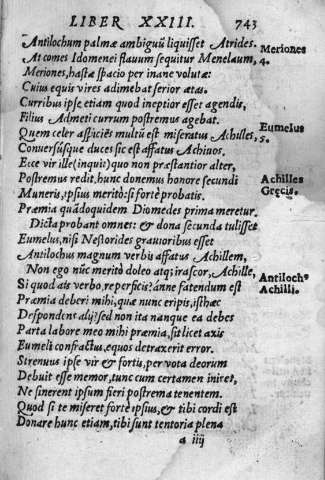 LIBER XXIII. 743
Antilochum palmæ ambiguũ liquisset Atrides.
At comes Idomenei flauum sequitur Menelaum,
Meriones 4.
Meriones, hastæ spacio per inane volutæ:
Cuius equis vires adimebat serior ætas.
Curribus ipse etiam quod ineptior esset agendis,
Filius Admeti currum postremus agebat.
Quem celer aspiciẽs multũ est miseratus Achilles,
Eumelus 5.
Conuersúsque duces sic est affatus Achiuos.
Ecce vir ille (inquit) quo non præstantior alter,
Postremus redit. hunc donemus honore secundi
Achilles Grecis.
Muneris, ipsius meritò: si fortè probatis.
Præmia quãdoquidem Diomedes prima meretur.
Dicta probant omnes: & dona secunda tulisset
Eumelus, nisi Nestorides grauioribus esset
Antilochus magnum verbis affatus Achillem,
Non ego nũc meritò doleo atq; irascor, Achille,
Antiloch⁹ Achilli.
Si quod ais verbo, re perficis? ánne fatendum est
Præmia deberi mihi, quæ nunc eripis, isthæc
Despondens alijs? sed non ita nanque ea debes
Parta labore meo mihi præmia, sit licet axis
Eumeli confractus, equos detraxerit error.
Strenuus ipse vir & fortis, per vota deorum
Debuit esse memor, tunc cum certamen iniret,
Ne sinerent ipsum fieri postrema tenentem.
Quod si te miseret fortè ipsius, & tibi cordi est
Donare hunc etiam, tibi sunt tentoria plena
a iiij